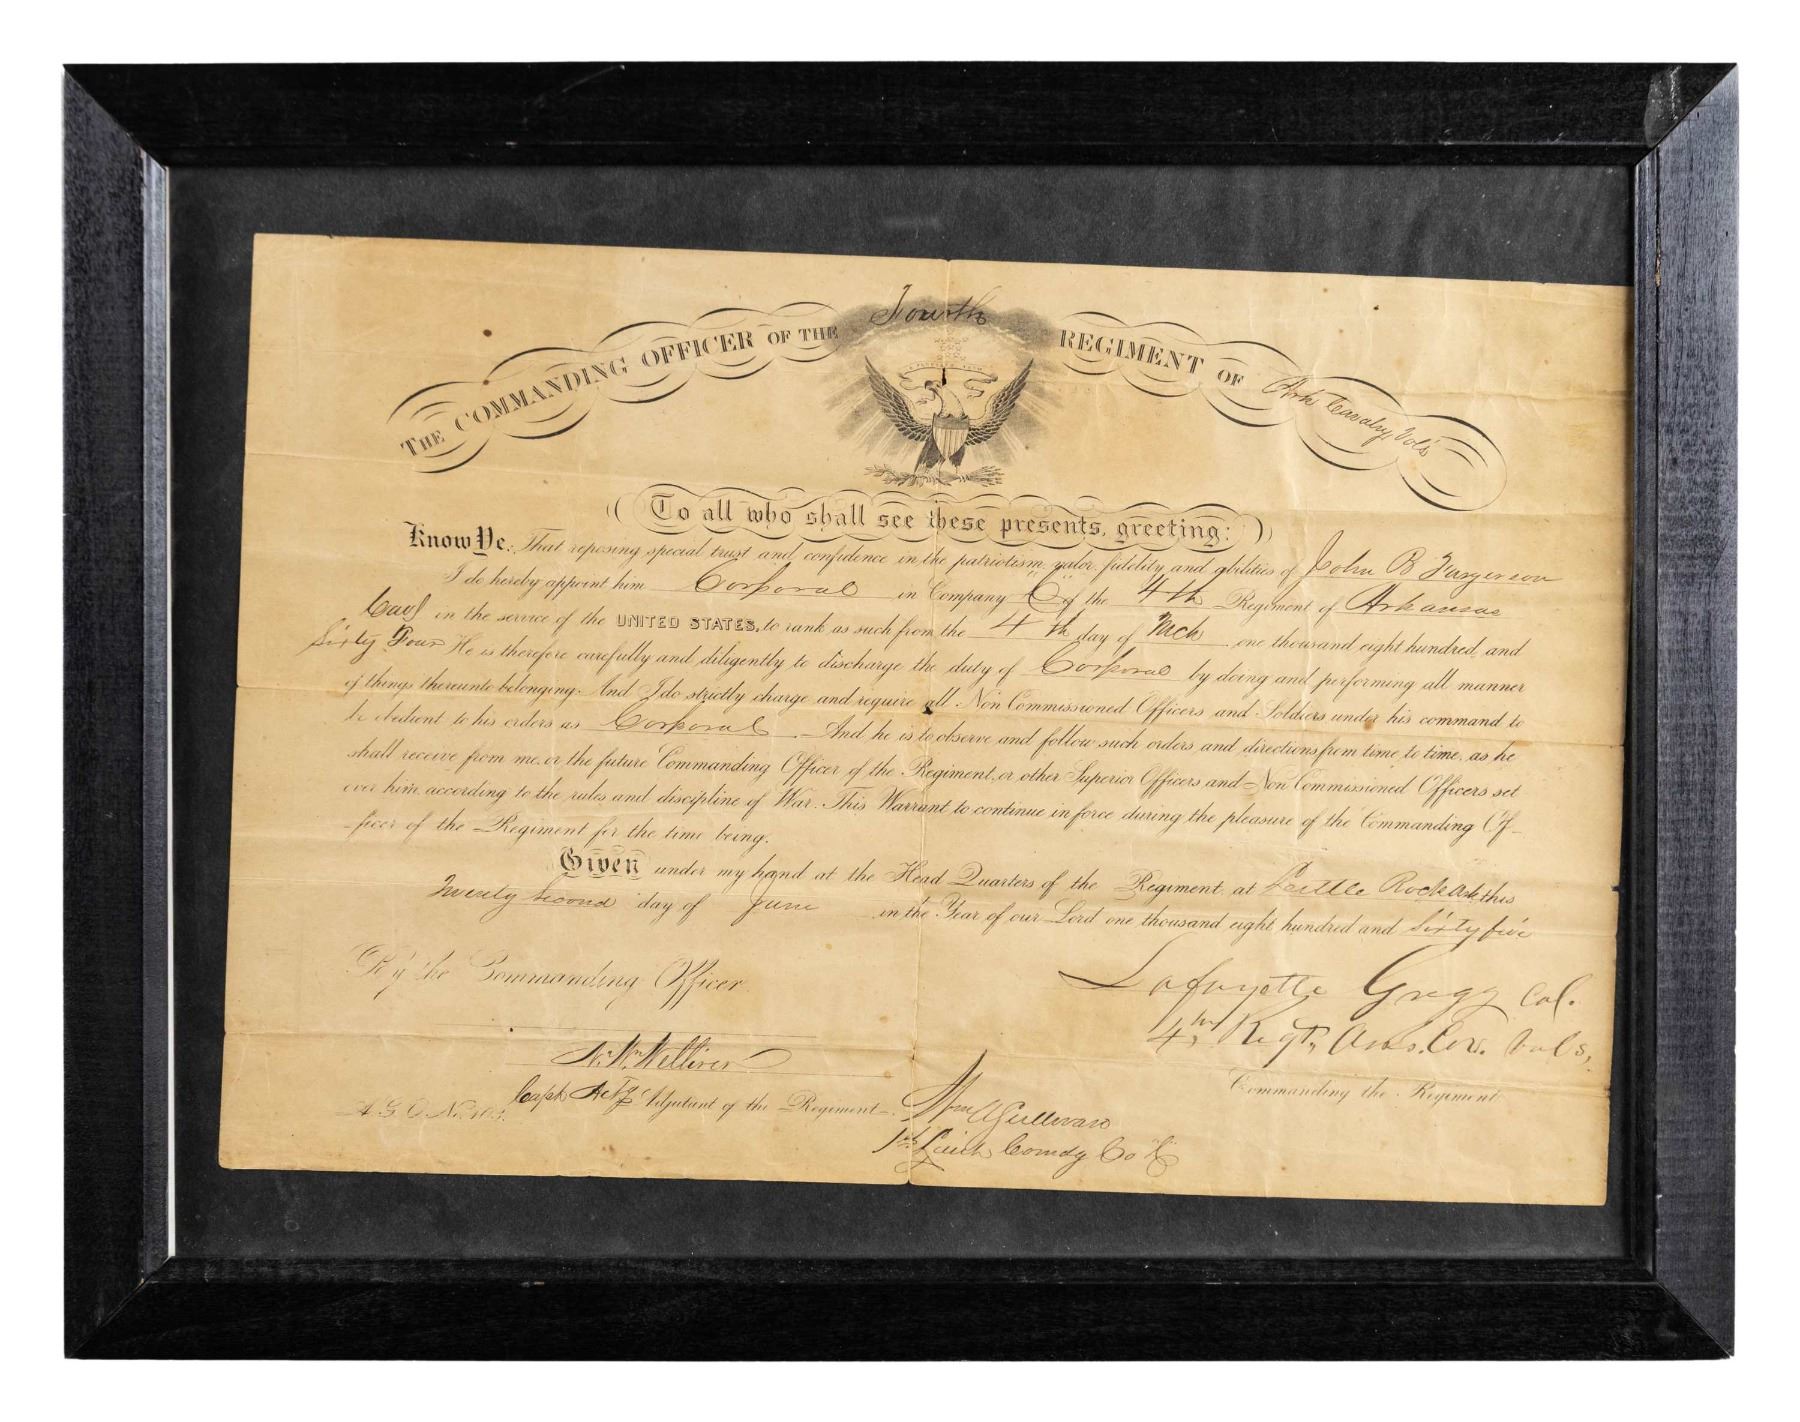 Fourth
THE COMMANDING OFFICER OF THE REGIMENT OF Ark Cavalry Vols
To all who shall see these presents, greeting:
Know Ye: That reposing special trust and confidence in the patriotism, valor, fidelity and abilities of John B Furgerson
I do hereby appoint him Corporal in Company "C" of the 4th Regiment of Arkansas
Cavl in the service of the UNITED STATES, to rank as such from the 4th day of Mch one thousand eight hundred, and
Sixty Four He is therefore carefully and diligently to discharge the duty of Corporal by doing and performing all manner
of things thereunto belonging. And I do strictly charge and require all Non Commissioned Officers and Soldiers under his command to
be obedient to his orders as Corporal. And he is to observe and follow such orders and directions from time to time, as he
shall receive from me, or the future Commanding Officer of the Regiment, or other Superior Officers and Non Commissioned Officers set
over him, according to the rules and discipline of War. This Warrant to continue in force during the pleasure of the Commanding Of-
ficer of the Regiment for the time being.
Given under my hand at the Head Quarters of the Regiment, at Little Rock Ark this
Twenty Second day of June in the Year of our Lord one thousand eight hundred and Sixty five
By the Commanding Officer.
Lafayette Gregg Col.
4th Regt, Arks. Cav. Vols,
Commanding the Regiment.
N. Wm Welliver
Capt Actg Adjutant of the Regiment.
A. G. O. No.
Wm A Sullivan
1st Lieut Comdg Co "C"